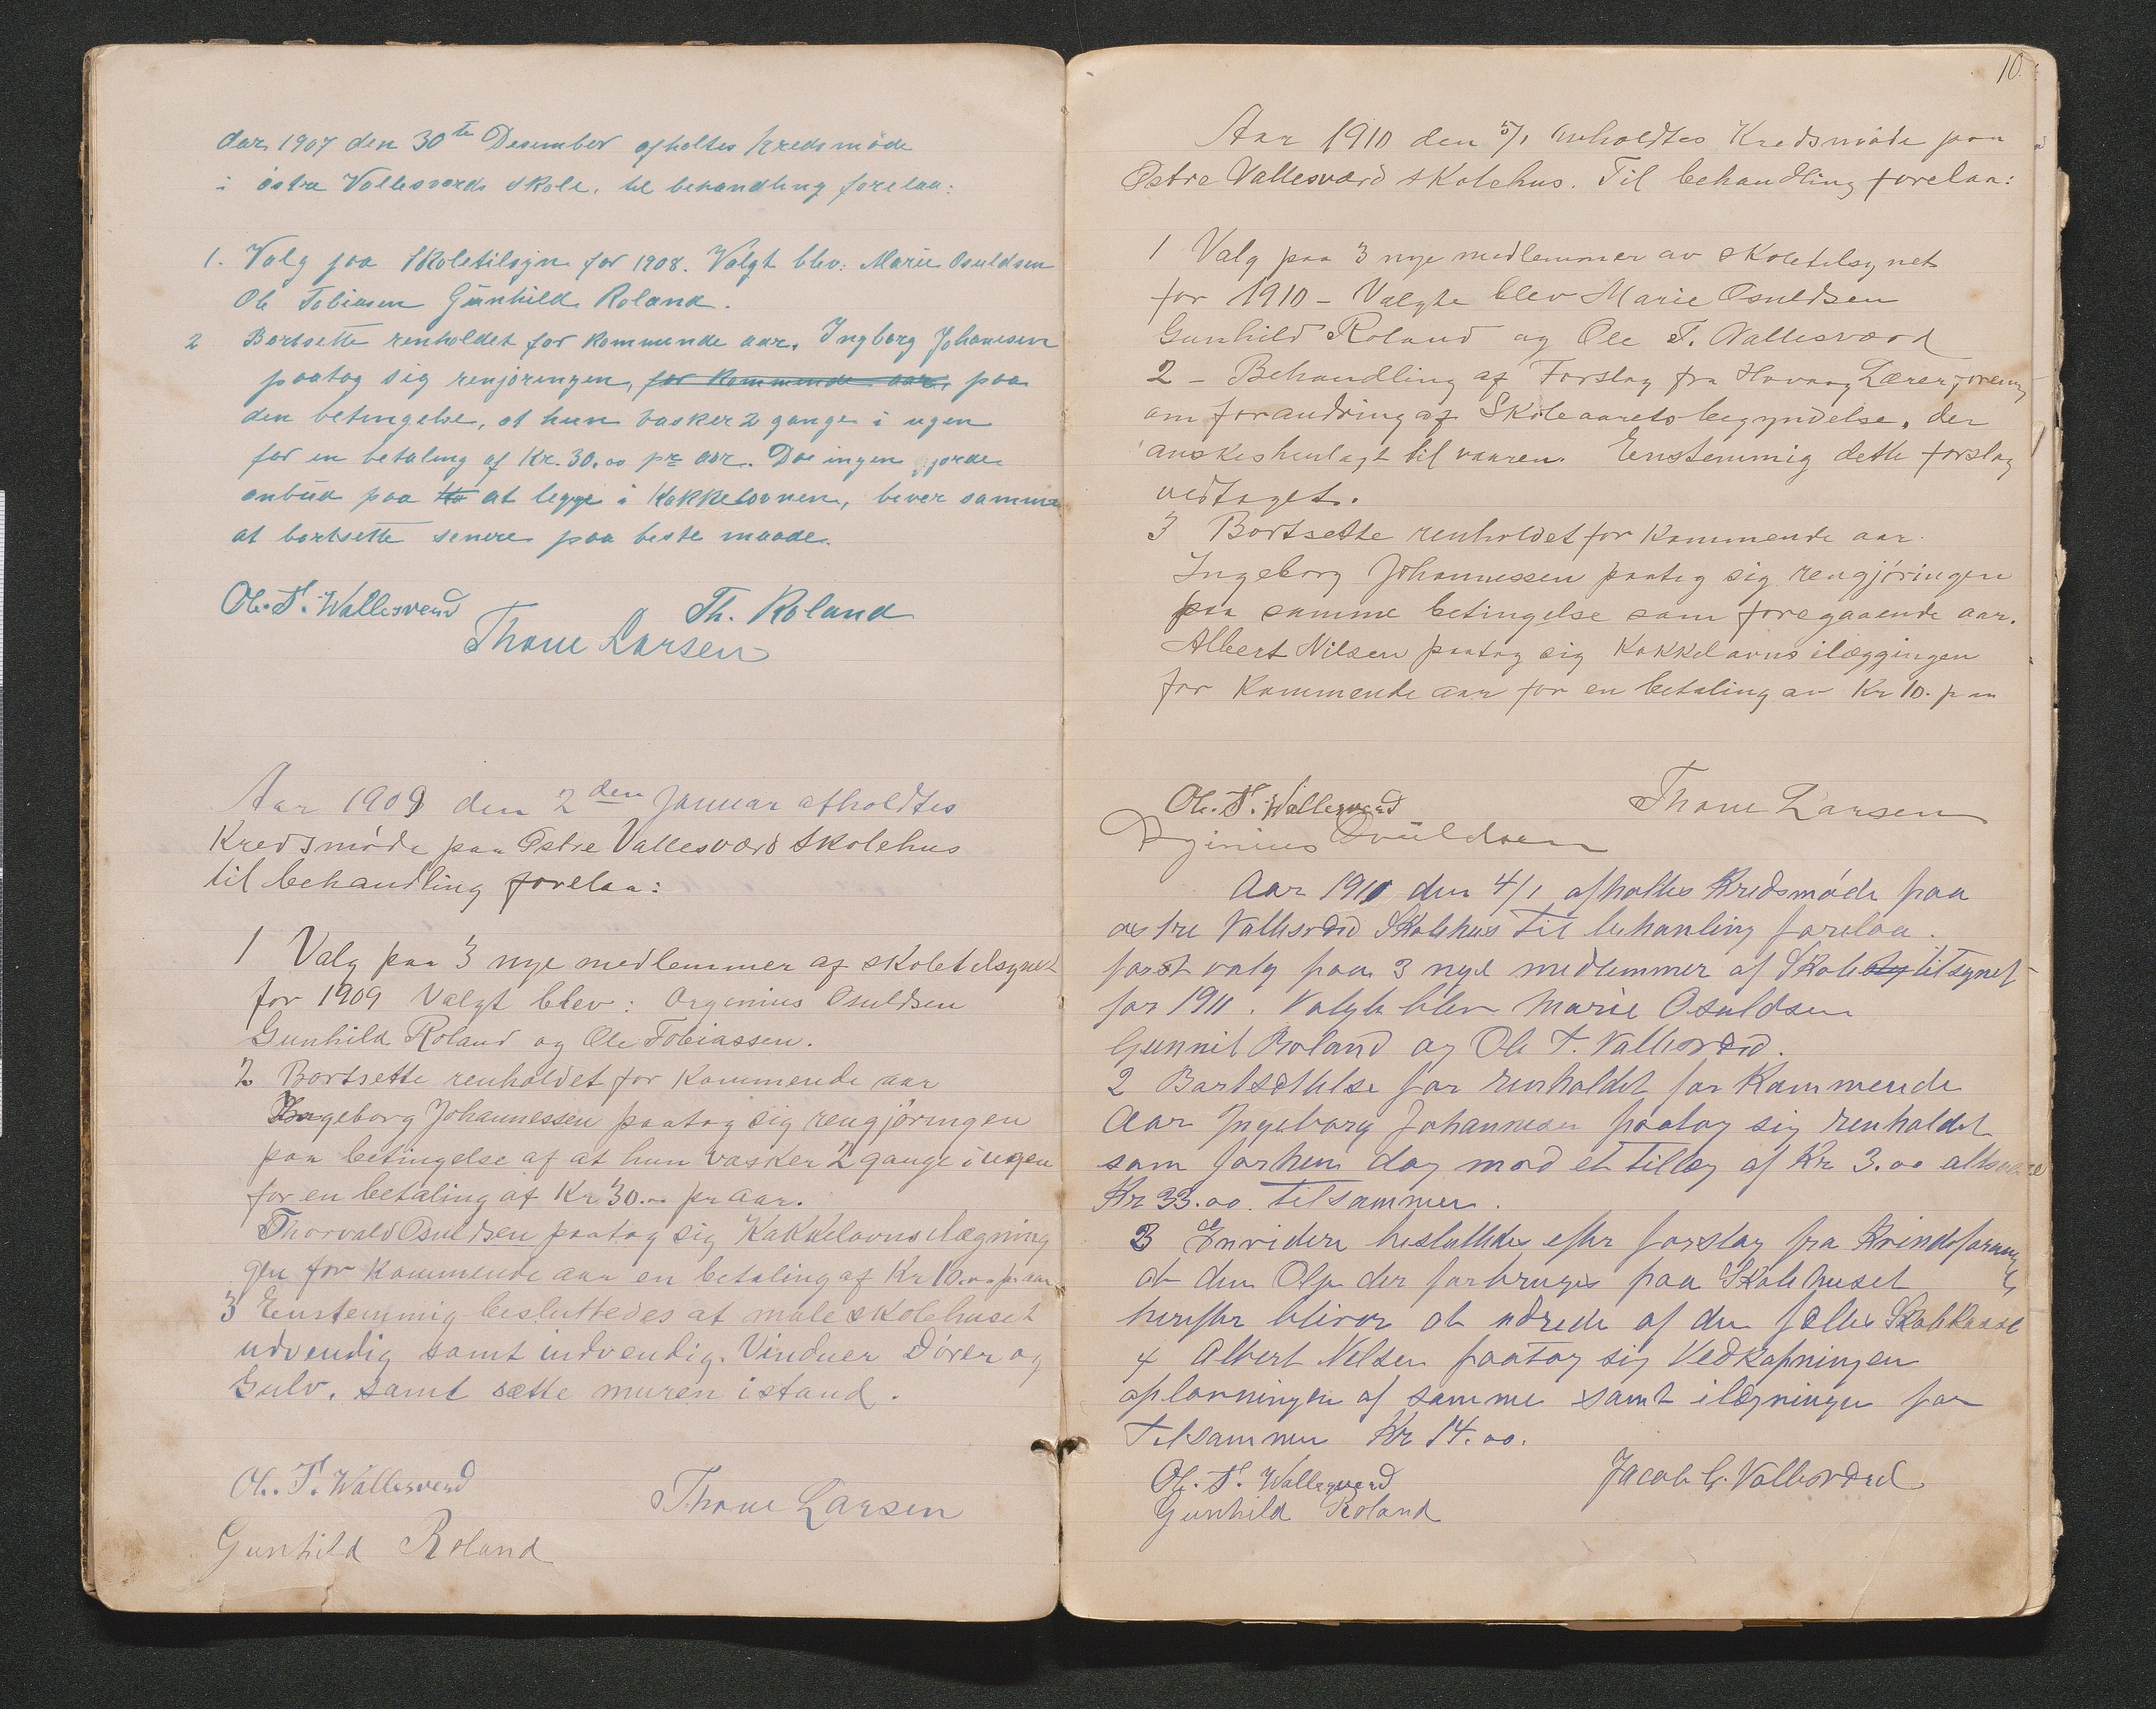 Aar 1907 den 30te Desember afholtes Kredsmöde
i östre Vallesverds skole, til behandling forelaa:
1. Valg paa Skoletilsyn for 1908. Valgt blev: Marie Osuldsen
Ole Tobiasen Gunhild Roland.
2 Bortsette renholdet for kommende aar. Ingborg Johanesen
paatog sig renjöringen, for kommende aar, paa
den betingelse, at hun vasker 2 gange i ugen
for en betaling af Kr. 30.00 pr aar. Da ingen gjorde
anbud paa at legge i Kakkelovnen, blver samme
at bortsette senere paa beste maade.
Ole. T. Wallesverd
Th. Roland
Thone Larsen
Aar 1909 den 2den Januar afholdtes
Kredsmöde paa Östre Vallesværd Skolehus
til behandling forelaa:
1 Valg paa 3 nye medlemmer af skoletilsynet
for 1909 Valgt blev: Orginius Osuldsen
Gunhild Roland og Ole Tobiassen.
2 Bortsette renholdet for Kommende aar
Ingeborg Johannessen paatog sig rengjöringen
paa betingelse af at hun vasker 2 gange i ugen
for en betaling af Kr 30.00 pr aar.
Thorvald Osuldsen paatog sig Kakkelovnsilægning
gen for Kommende aar en betaling af Kr 10.00 pr aar
3 Eenstemmig besluttedes at male skolehuset
udvendig samt indvendig. Vinduer Dörer og
Gulv, samt sætte muren istand.
Ole. T. Wallesverd
Thone Larsen
Gunhild Roland
10.
Aar 1910 den 5/1 avholdtes Kredsmöde paa
Östre Vallesværd skolehus. Til behandling forelaa:
1 Valg paa 3 nye medlemmer av skoletilsynet
for 1910 - Valgte blev Marie Osuldsen
Gunhild Roland og Ole T. Vallesværd
2 - Behandling af Forslag fra Havaag Lærerforening
om forandring af Skoleaarets begyndelse, der
önskes henlagt til vaaren. Enstemmig dette forslag
vedtaget.
3 Bortsette renholdet for Kommende aar.
Ingeborg Johannessen paatog sig rengjöringen
paa samme betingelse som foregaaende aar.
Albert Nilsen paatog sig Kakkelovns ilæggingen
for Kommende aar for en betaling av Kr 10. p aa
Ole. T. Wallesverd
Thone Larsen
Osuldsen
Aar 1911 den 4/1 afholtes Kredsmöde paa
östre Vallesværd Skolehus til behanling forelaa.
först valg paa 3 nye medlemmer af Skole tilsynet
for 1911. Valgte blev Marie Osuldsen
Gunnil Roland og Ole T. Vallesværd.
2 Bortsettelse for renholdet for Kommende
Aar Ingeborg Johannesen paatog sig renholdet
som forhen dog mod et tillæg af Kr 3.00 altsaa
Kr 33.00. tilsammen.
3 Envidere besluttedes efter forslag fra Kvindeforening
at den Olje der forbruges paa Skolehuset
herefter bliver at udrede af den fælles Skolekasse
4 Albert Nelsen paatog sig Vedkapningen
oplavningen af samme samt ilægningen for
Tilsammen Kr 14.00.
Ole. T. Wallesverd
Jacob G. Vallesværd
Gunhild Roland